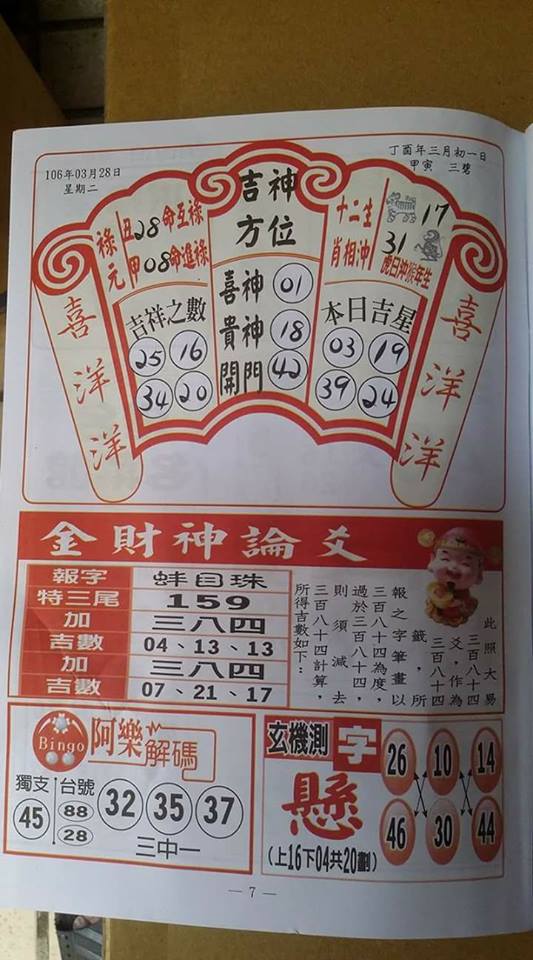 106年03月28日
星期二
丁酉年三月初一日
甲寅 三碧
吉神
方位
喜神 01
貴神 18
開門 42
祿元
丑28命互祿
甲08命進祿
吉祥之數
25 16
34 20
十二生
肖相沖
17
31
虎日沖猴年生
本日吉星
03 19
39 24
喜洋洋
喜洋洋
金財神論爻
報字 蚌目珠
特三尾 159
加 三八四
吉數 04、13、13
加 三八四
吉數 07、21、17
此照大易
三百八十四
爻，作為
三百八十四
籤，所
報之字筆畫以
三百八十四為度，
過於三百八十四，
則須減去
三百八十四計算，
所得吉數如下：
Bingo 阿樂解碼
獨支 45
台號 88 28
32 35 37
三中一
玄機測字
懸
(上16下04共20劃)
26 10 14
46 30 44
— 7 —